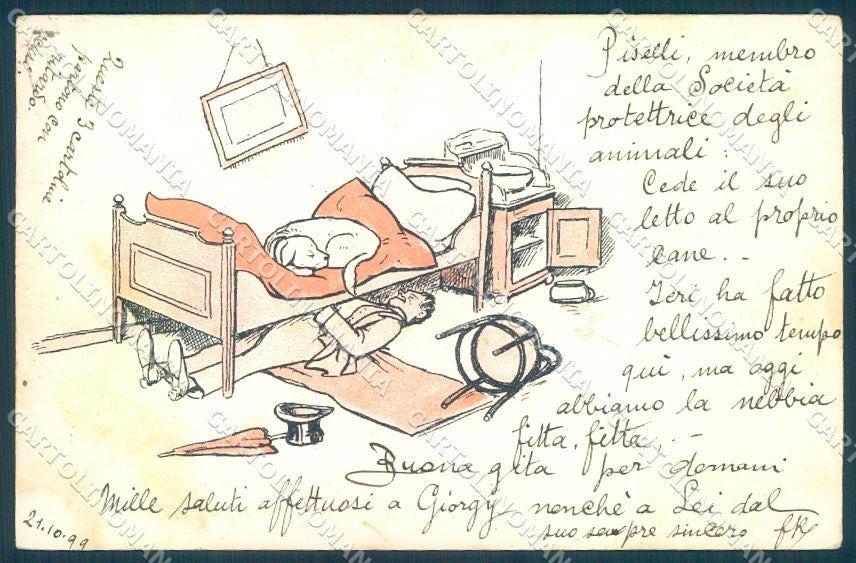 Queste 3 cartoline
partono con
ritardo.
Piselli, membro
della Società
protettrice degli
animali:
Cede il suo
letto al proprio
cane..-
Ieri ha fatto
bellissimo tempo
quì, ma oggi
abbiamo la nebbia
fitta, fitta,.-
Buona gita per domani
Mille saluti affettuosi a Giorgy nonchè a Lei dal
suo sempre sincero
21.10.99
CARTOLINOMANIA